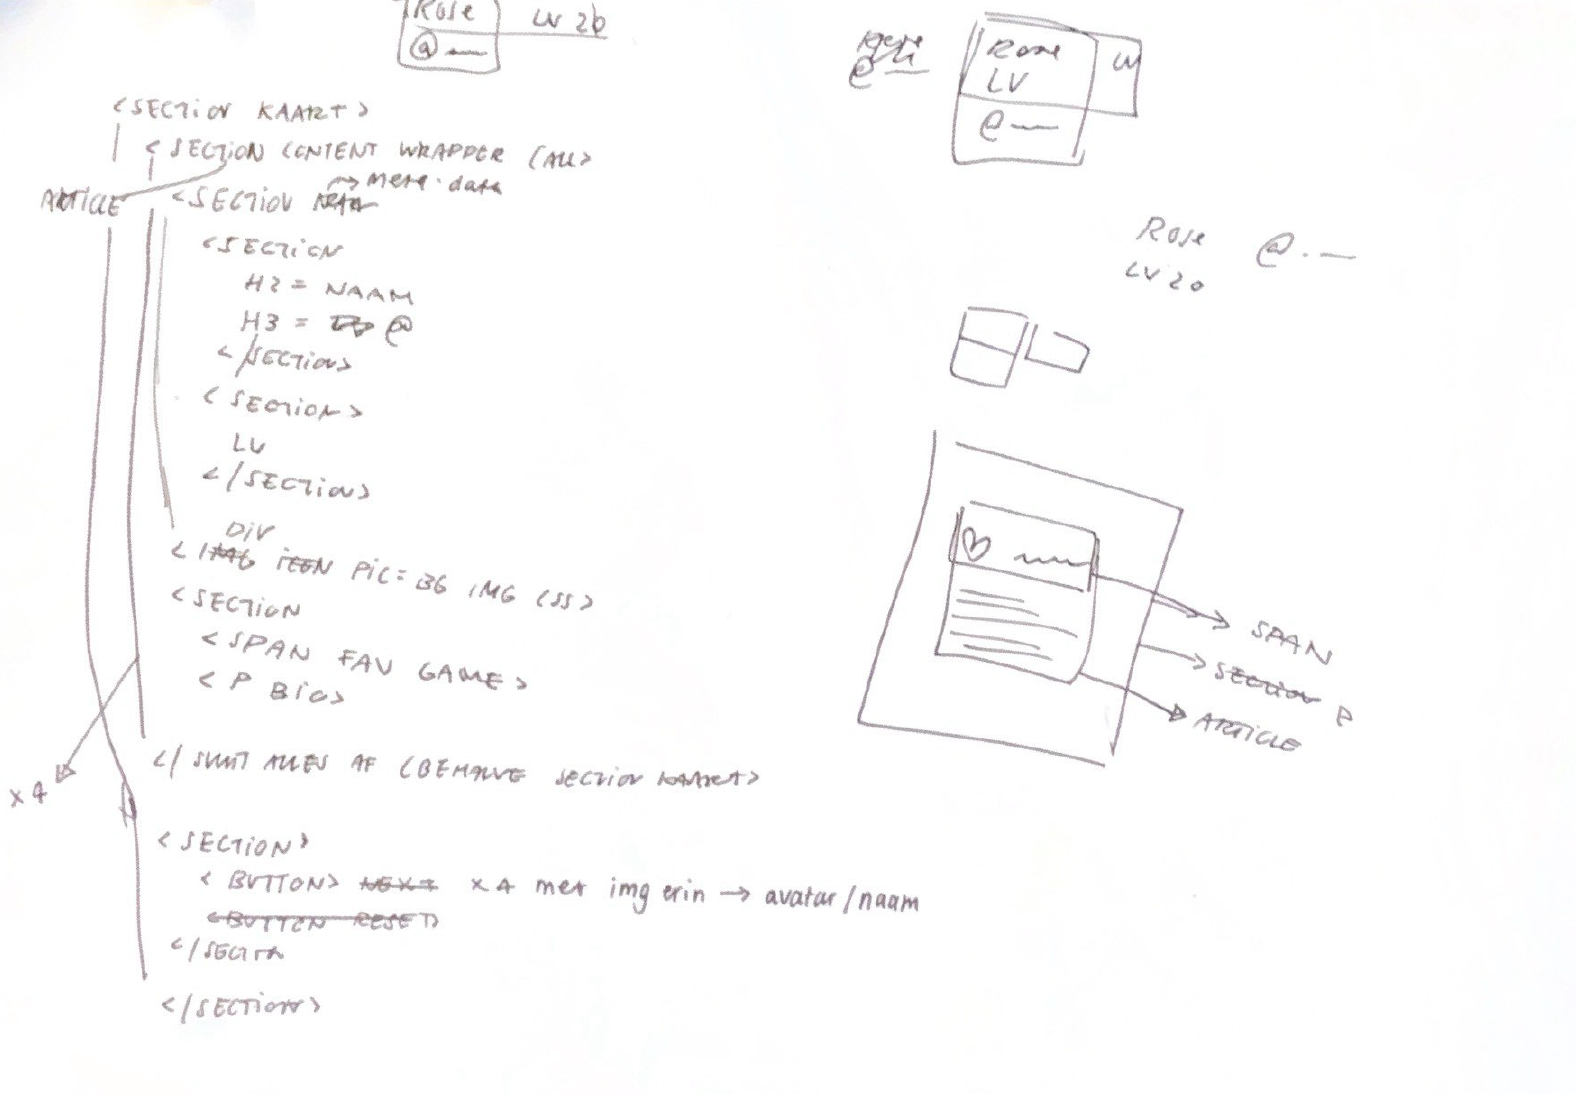 Rose LV 20
@ —
<SECTION KAART>
<SECTION CONTENT WRAPPER (ALL>
ARTICLE
→ mere-data
<SECTION
<SECTION
H2 = NAAM
H3 = @
</SECTION>
<SECTION>
LV
</SECTION>
DIV
<IMG ICON PIC = BG IMG CSS>
<SECTION
<SPAN FAV GAME>
<P BIO>
</ SLUIT ALLES AF (BEHALVE SECTION KAART>
x4
<SECTION>
<BUTTON> NEXT x4 met img erin → avatar/naam
<BUTTON RESET>
</SECTION
</SECTION>
@ —
Rose LV
LV
@ —
Rose @.—
LV 20
SPAN
SECTION P
ARTICLE